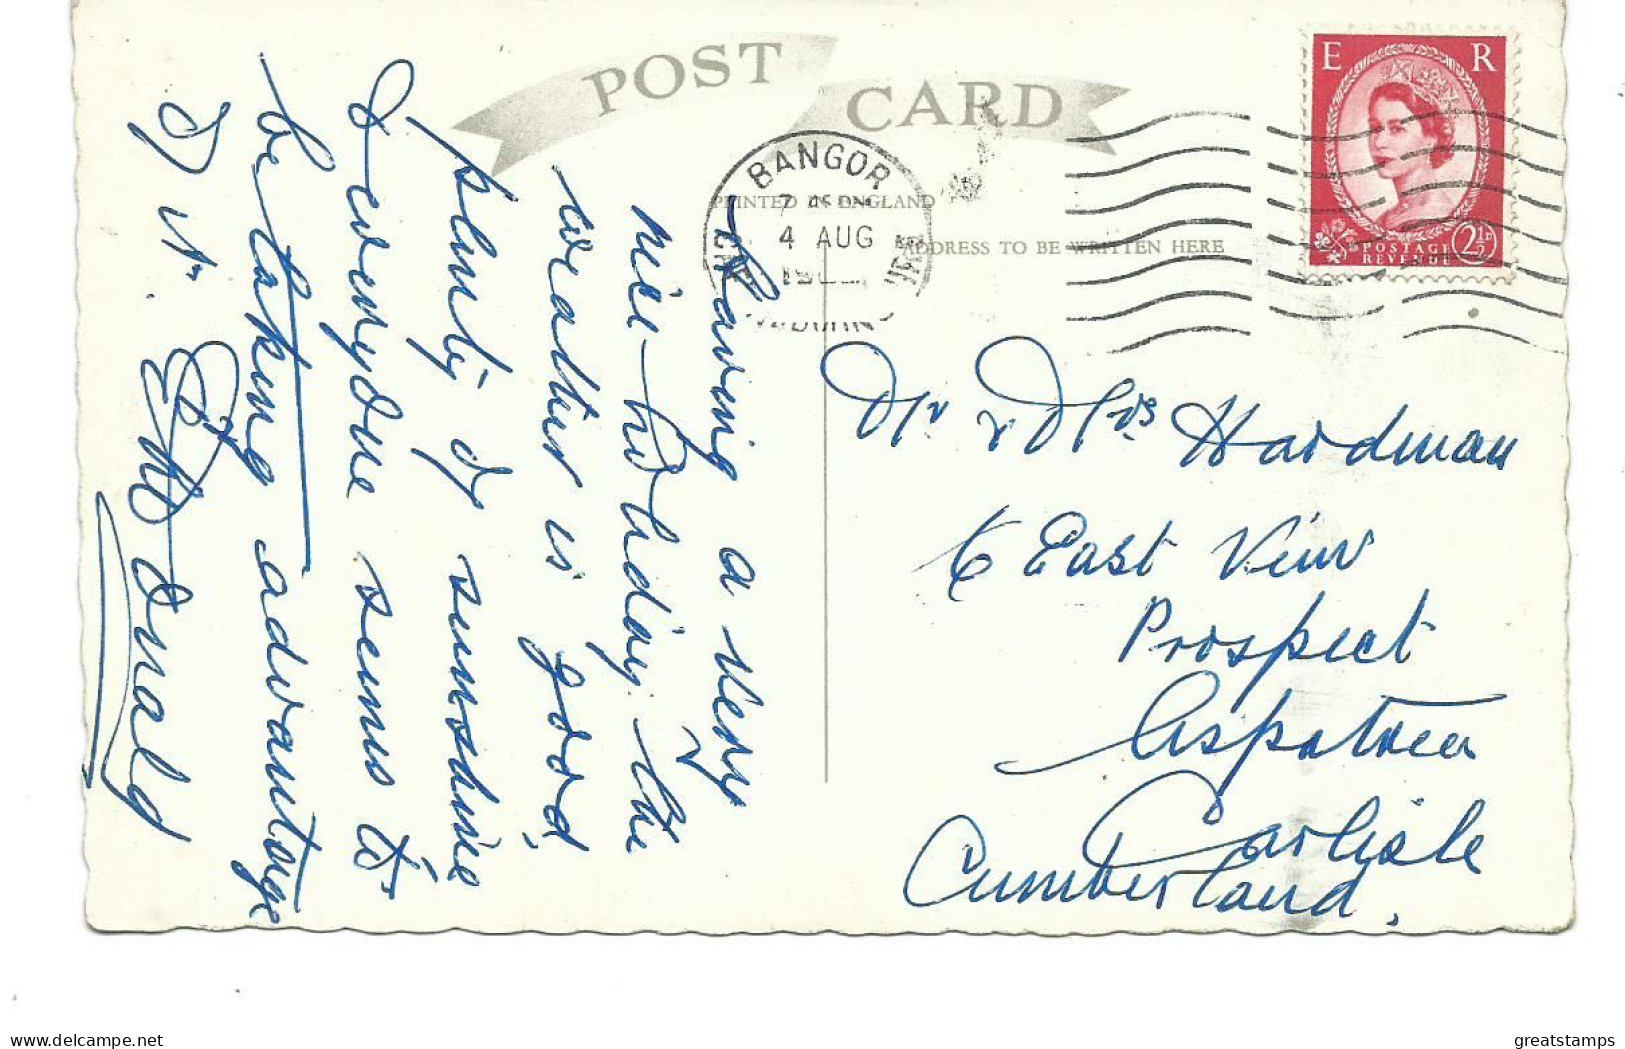 POST CARD
PRINTED IN ENGLAND
ADDRESS TO BE WRITTEN HERE
BANGOR
4 AUG
E R
POSTAGE
REVENUE
2½D
Having a very
nice holiday. the
weather is good
plenty of sunshine
& everyone seems to
be taking advantage
of it.
Donald
Mr & Mrs Hardman
6 East View
Prospect
Aspatria
Carlisle
Cumberland.
ehm.com
greatstamps